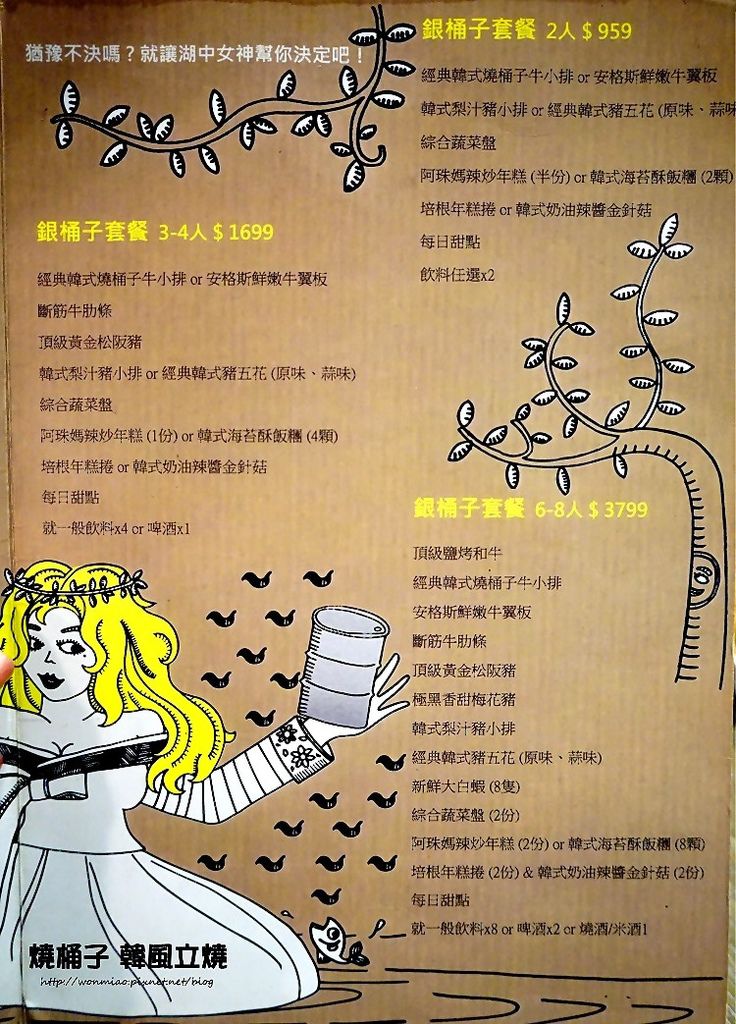 猶豫不決嗎？就讓湖中女神幫你決定吧！
銀桶子套餐 2人 $ 959
經典韓式燒桶子牛小排 or 安格斯鮮嫩牛翼板
韓式梨汁豬小排 or 經典韓式豬五花 (原味、蒜味
綜合蔬菜盤
阿珠媽辣炒年糕 (半份) or 韓式海苔酥飯糰 (2顆)
培根年糕捲 or 韓式奶油辣醬金針菇
每日甜點
飲料任選x2
銀桶子套餐 3-4人 $ 1699
經典韓式燒桶子牛小排 or 安格斯鮮嫩牛翼板
斷筋牛肋條
頂級黃金松阪豬
韓式梨汁豬小排 or 經典韓式豬五花 (原味、蒜味)
綜合蔬菜盤
阿珠媽辣炒年糕 (1份) or 韓式海苔酥飯糰 (4顆)
培根年糕捲 or 韓式奶油辣醬金針菇
每日甜點
就一般飲料x4 or 啤酒x1
銀桶子套餐 6-8人 $ 3799
頂級鹽烤和牛
經典韓式燒桶子牛小排
安格斯鮮嫩牛翼板
斷筋牛肋條
頂級黃金松阪豬
極黑香甜梅花豬
韓式梨汁豬小排
經典韓式豬五花 (原味、蒜味)
新鮮大白蝦 (8隻)
綜合蔬菜盤 (2份)
阿珠媽辣炒年糕 (2份) or 韓式海苔酥飯糰 (8顆)
培根年糕捲 (2份) & 韓式奶油辣醬金針菇 (2份)
每日甜點
就一般飲料x8 or 啤酒x2 or 燒酒/米酒1
燒桶子 韓風立燒
http://wonmiao.pixnet.net/blog